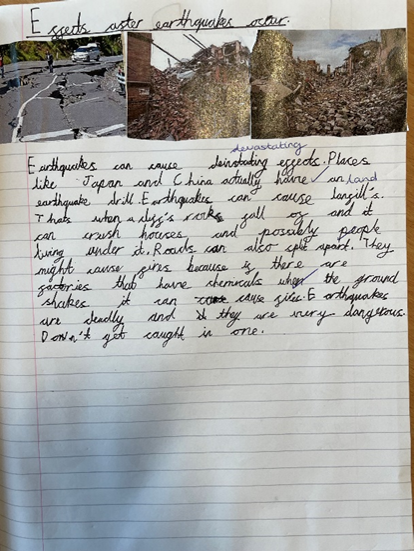 Effects after earthquakes occur.
devastating
Earthquakes can cause deinstating effects. Places
like Japan and China actually have an land
earthquake drill. Earthquakes can cause langill's.
Thats when a cliff's rocks fall of and it
can crush houses and possibly people
living under it. Roads can also split apart. They
might cause fires because if there are
factories that have chemicals when the ground
shakes it can cause fire. Earthquakes
are deadly and they are very dangerous.
Don't get caught in one.